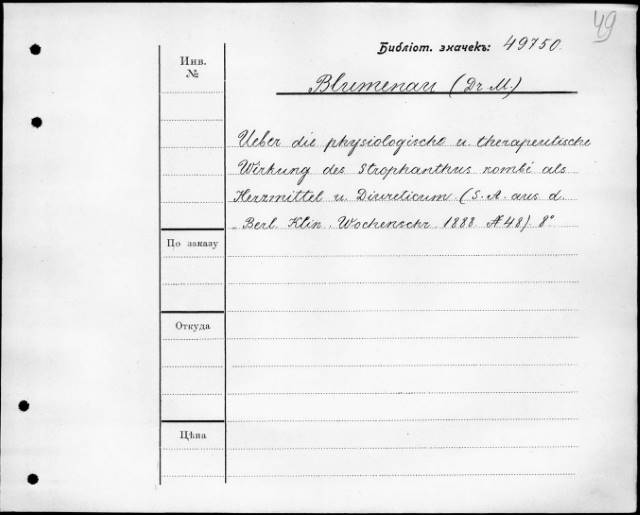 49
Библіот. значекъ: 49750.
Инв.
№
Blumenau (Dr M.)
Ueber die physiologische u. therapeutische
Wirkung des Strophanthus kombé als
Herzmittel u. Diureticum (S. A. aus d.
Berl. Klin. Wochenschr. 1888 № 48) 8°
По заказу
Откуда
Цѣна